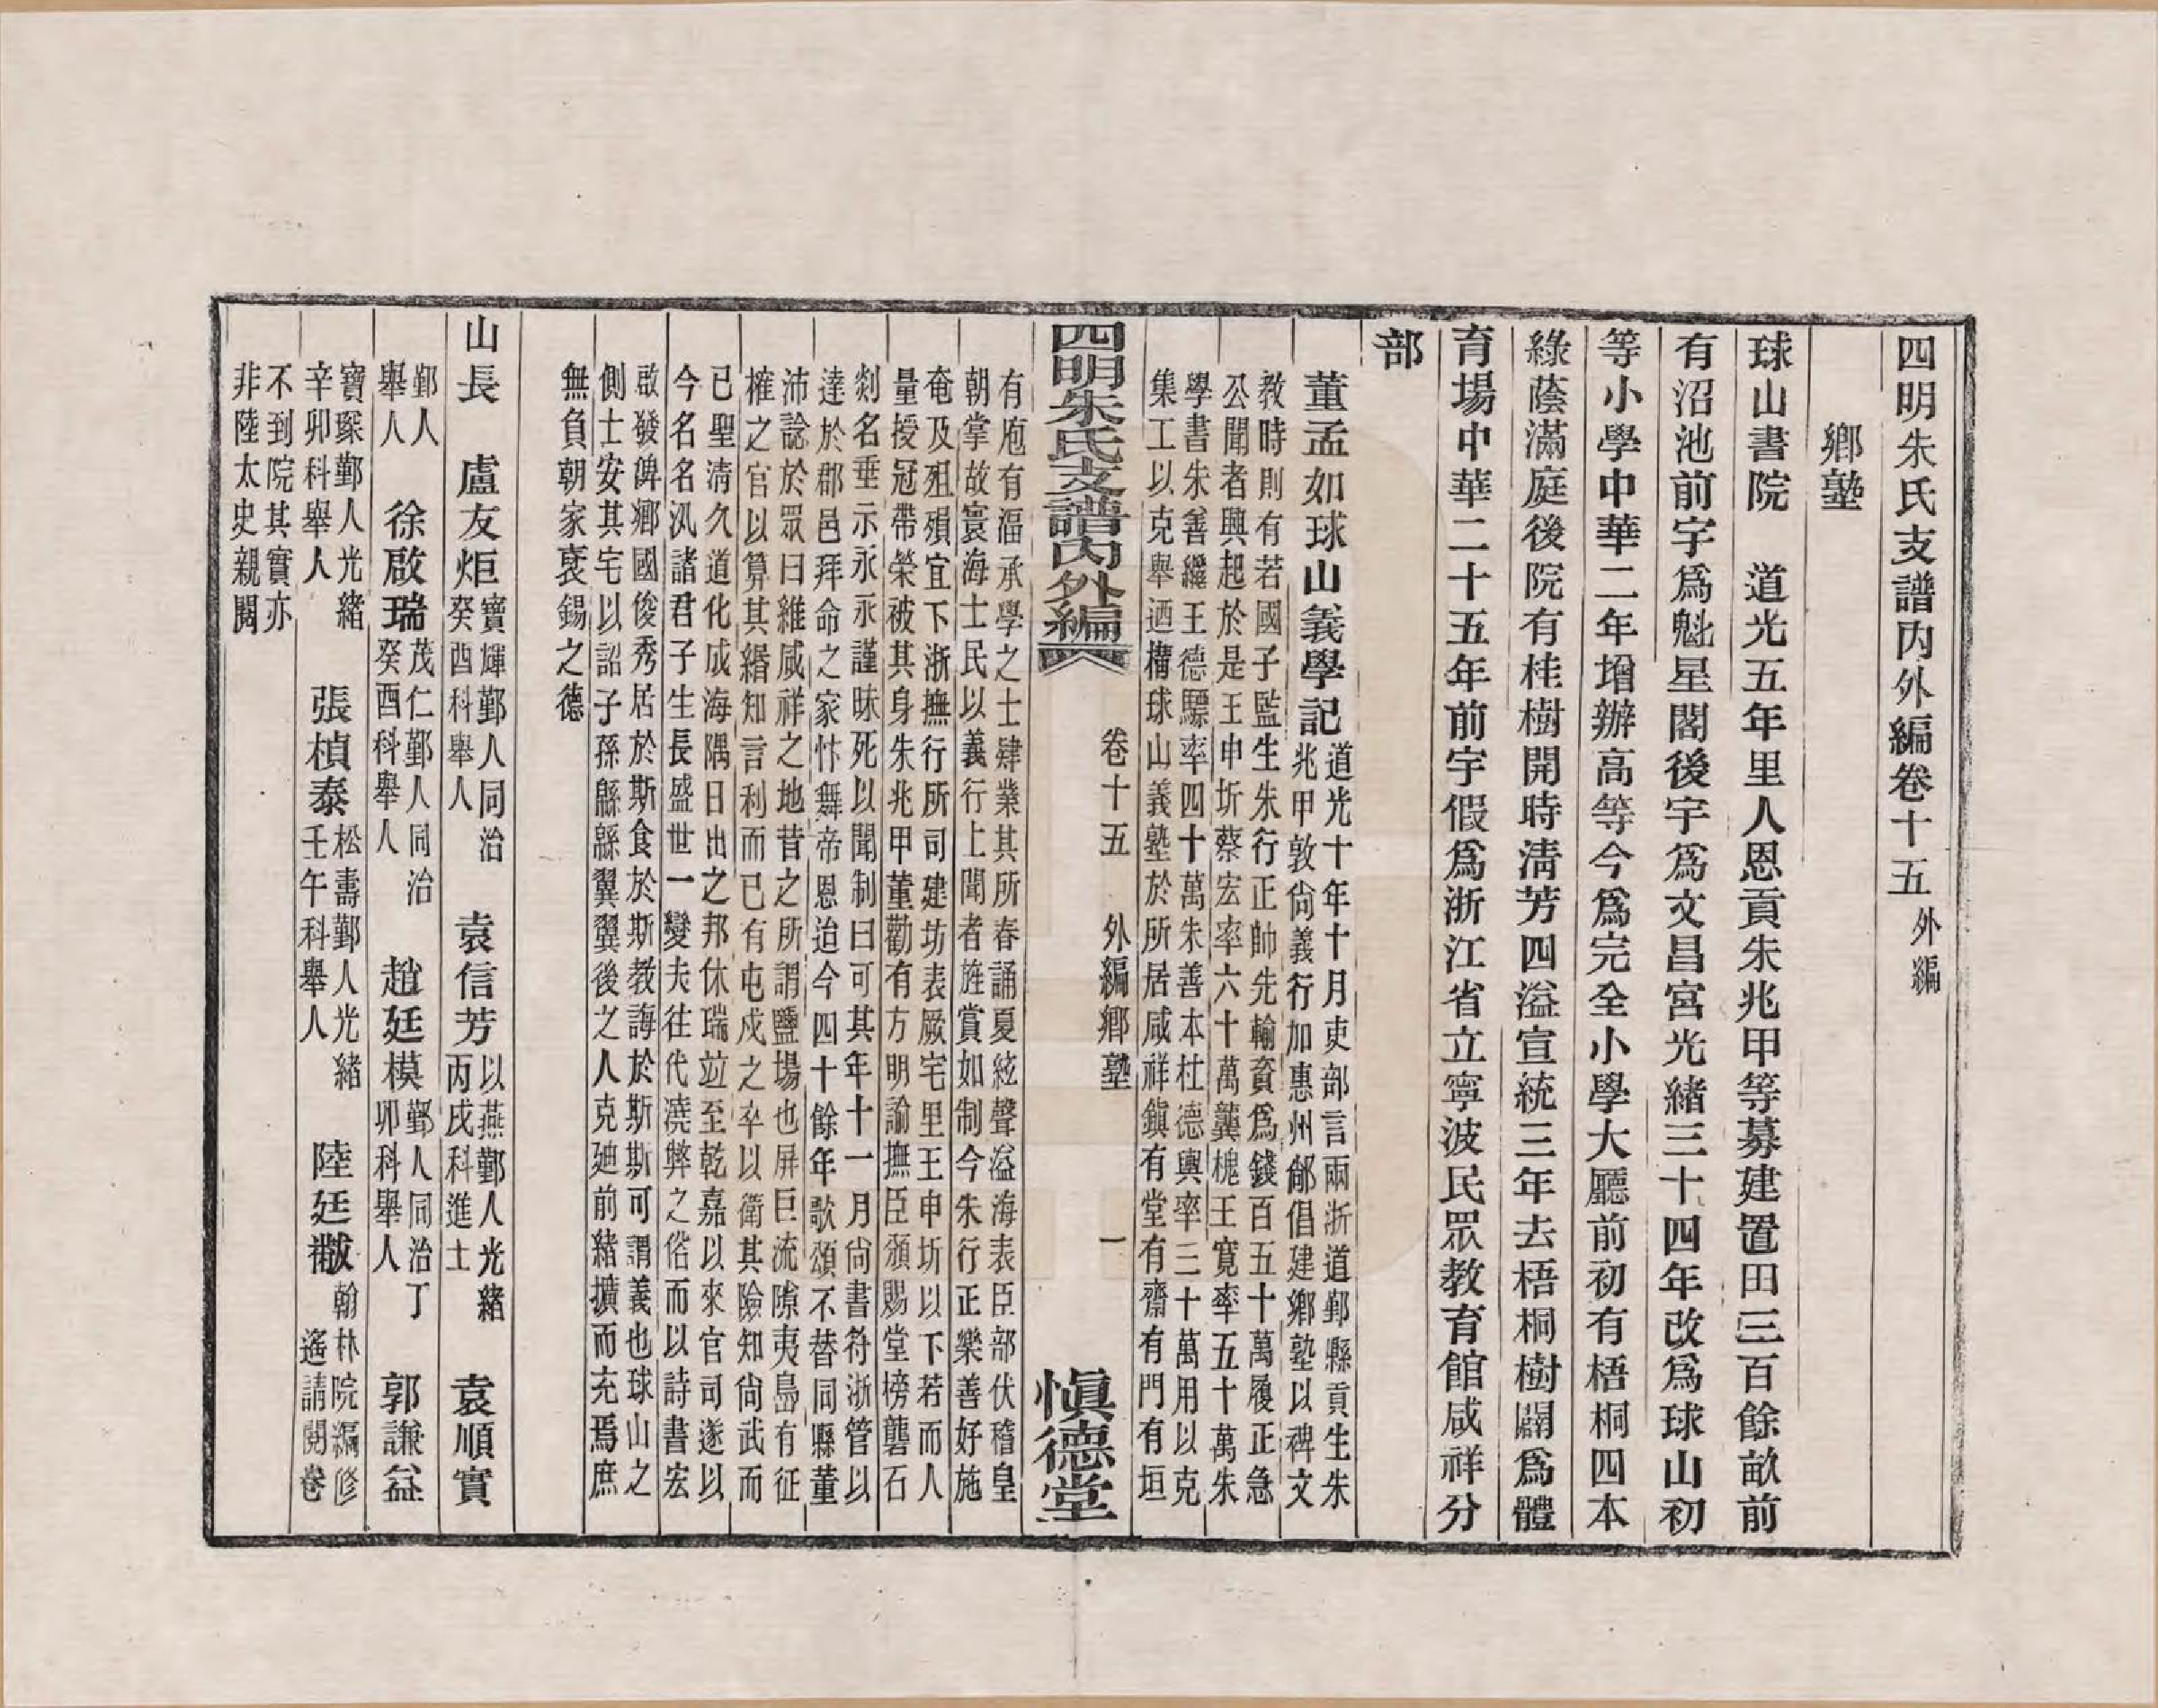 四明朱氏支譜內外編卷十五 外編
鄉塾
球山書院 道光五年里人恩貢朱兆甲等募建置田三百餘畝前
有沼池前宇爲魁星閣後宇爲文昌宮光緒三十四年改爲球山初
等小學中華二年增辦高等今爲完全小學大廳前初有梧桐四本
綠蔭滿庭後院有桂樹開時淸芳四溢宣統三年去梧桐樹闢爲體
育場中華二十五年前宇假爲浙江省立寧波民眾教育館咸祥分
部
董孟如球山義學記
道光十年十月吏部言兩浙道鄞縣貢生朱
兆甲敦尙義行加惠州鄉倡建鄉塾以裨文
教時則有若國子監生朱行正帥先輸資爲錢百五十萬履正急
公聞者興起於是王申圻蔡宏率六十萬龔槐王寬率五十萬朱
學書朱善繼王德驃率四十萬朱善本杜德輿率三十萬用以克
集工以克舉迺構球山義塾於所居咸祥鎭有堂有齋有門有垣
四明朱氏支譜內外編 卷十五 外編鄉塾 一 愼德堂
有庖有湢承學之士肄業其所春誦夏絃聲溢海表臣部伏稽皇
朝掌故寰海士民以義行上聞者旌賞如制今朱行正樂善好施
奄及殂殞宜下浙撫行所司建坊表厥宅里王申圻以下若而人
量授冠帶榮被其身朱兆甲董勸有方明諭撫臣頒賜堂榜礱石
剡名垂示永永謹昧死以聞制曰可其年十一月尙書符浙管以
達於郡邑拜命之家忭舞帝恩迨今四十餘年歌頌不替同縣董
沛諗於眾曰維咸祥之地昔之所謂鹽場也屏巨流隙夷島有征
榷之官以算其緡知言利而已有屯戍之卒以衛其險知尙武而
已聖淸久道化成海隅日出之邦休瑞竝至乾嘉以來官司遂以
今名名汎諸君子生長盛世一變夫往代澆弊之俗而以詩書宏
啟發俾鄉國俊秀居於斯食於斯教誨於斯斯可謂義也球山之
側士安其宅以詔子孫緜緜翼翼後之人克廸前緖擴而充焉庶
無負朝家褒錫之德
山長 盧友炬 寶煇鄞人同治癸酉科舉人 袁信芳 以燕鄞人光緖丙戌科進士 袁順實
鄞人舉人 徐啟瑞 茂仁鄞人同治癸酉科舉人 趙廷模 鄞人同治丁卯科舉人 郭謙益
寶琛鄞人光緖辛卯科舉人 張楨泰 松壽鄞人光緖壬午科舉人 陸廷黻 翰林院編修遙請閱卷
不到院其實亦
非陸太史親閱